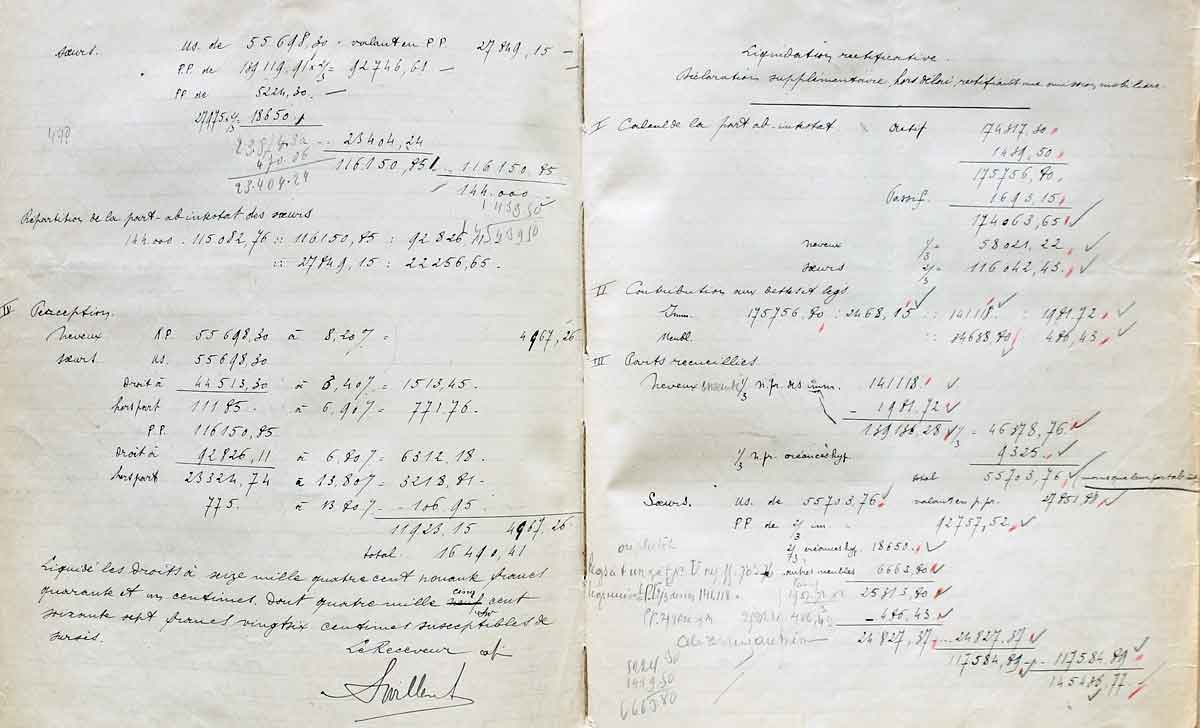 sœurs. us. de 55698,30 - valant en P.P. 27849,15 —
P.P. de 139119.91 x 2/3 = 92746,61 —
P.P. de 5224,30. —
27975 x 2/3 = 18650
498
23404,24
470.06
23.404.24
116150,85 116150,85
144.000
1439.50
145439.50
Répartition de la part-ab-intestat des sœurs
144.000 : 115.082,76 :: 116150,85 : 92826,11
:: 27849,15 : 22256,65.
IV Perception.
Neveux N.P. 55698,30 à 8,20% = 4967,26
sœurs us. 55698,30
Droit à 44513,30 à 3,40% = 1513,45.
hors part 11185. à 6,90% = 771.76.
P.P. 116150,85
Droit à 92826,11 à 6,80% = 6312,18.
hors part 23324,74 à 13,80% = 3218,81.
775. à 13.80% = 106.95.
11923,15 4967,26
total. 16490,41
Liquidé les droits à seize mille quatre cent nonante francs
quarante et un centimes. Dont quatre mille cinq cent
soixante sept francs vingt six centimes susceptibles de
sursis.
Le Receveur
Liquidation rectificative.
Déclaration supplémentaire, hors délai, rectifiant une omission mobilière.
I Calcul de la part ab-intestat actif 174317,30
1439,50
175756,80
Passif. 1693,15
174063,65
neveux 1/3 58021,22
sœurs 2/3 116042,43
II Contribution aux dettes et legs
Imm. 175756,80 : 2468,15 :: 141118. : 1981.72
Meubl. :: 34638.80 486,43
III Parts recueillies
Neveux 1/3 n.pr. des imm. 141118.
- 1981.72
139136,28 1/3 = 46378,76
1/3 n.pr. créances hyp. 9325.
total 55703,76
Sœurs. us. de 55703,76 valant en p.pr. 27851,88
P.P. de 2/3 im. 92757,52
2/3 créances hyp. 18650.
autres meubles 6663,80
25313,80
- 486,43
24827,37 24827,37
117584,89 117584,89
145436,77
5224 30
1439.50
6663.80